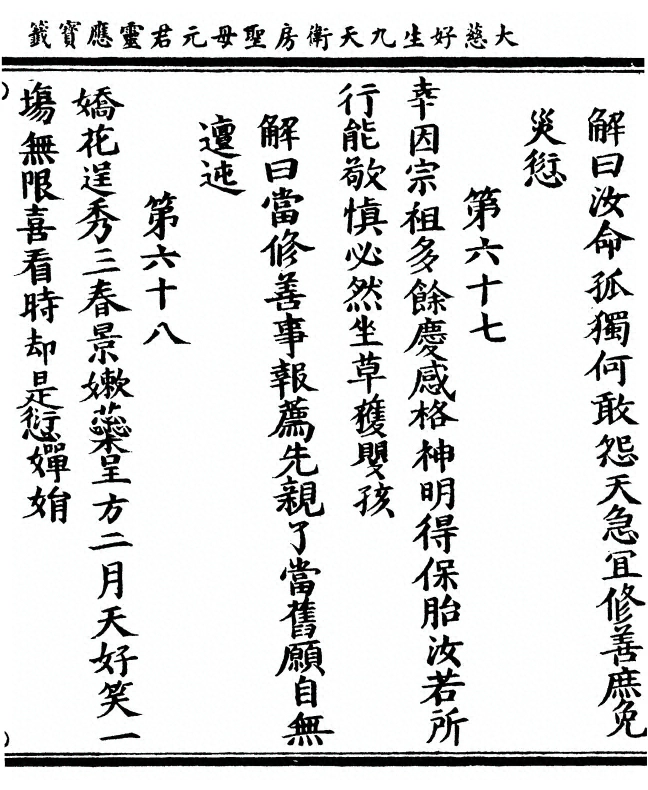 大慈好生九天衛房聖母元君靈應寶籤
解曰汝命孤獨何敢怨天急冝修善庶免
災愆
第六十七
幸因宗祖多餘慶感格神明得保胎汝若所
行能敬慎必然坐草獲嬰孩
解曰當修善事報薦先親了當舊願自無
邅迍
第六十八
嬌花逞秀三春景嫰蘂呈方二月天好笑一
塲無限喜看時却是愆嬋娟